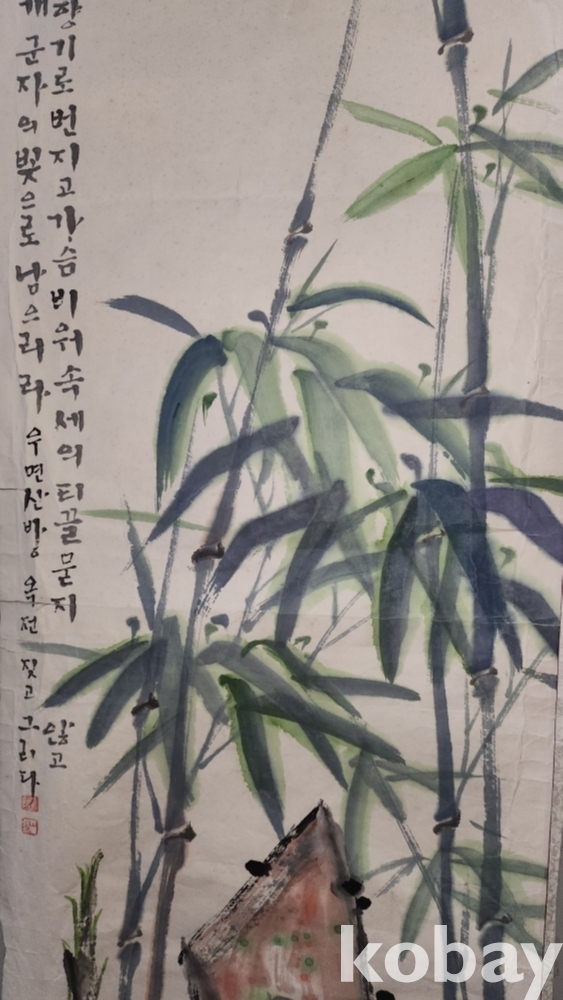 향기로 번지고 가슴 비워 속세의 티끌 묻지
않고
개 군자의 빛으로 남으리라 우면산방 옥전 짓고 그리다
kobay